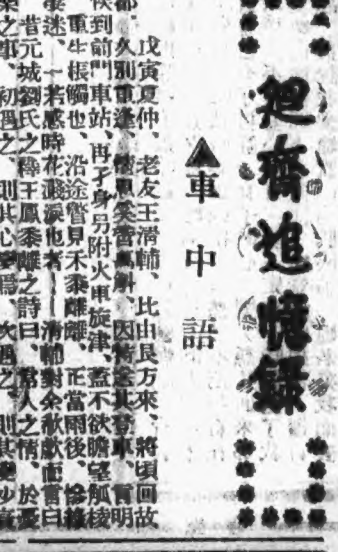 廻齋追憶錄
▲車中語
戊寅夏仲、老友王清輔、比由艮方來、將頃回故
都、久別重逢、懷思奚啻萬斛、因特送其登車、言明
候到前門車站、再孑身另附火車旋津、蓋不欲瞻望觚棱
重生棖觸也、沿途瞥見禾黍離離、正當雨後、慘綠
萋迷、一若感時花濺淚也者——清輔對余欷歔而言曰
昔元城劉氏之釋王風黍離之詩曰、常人之情、於憂
樂之事、初遇之、則其心變焉、次遇之、則其變少衰